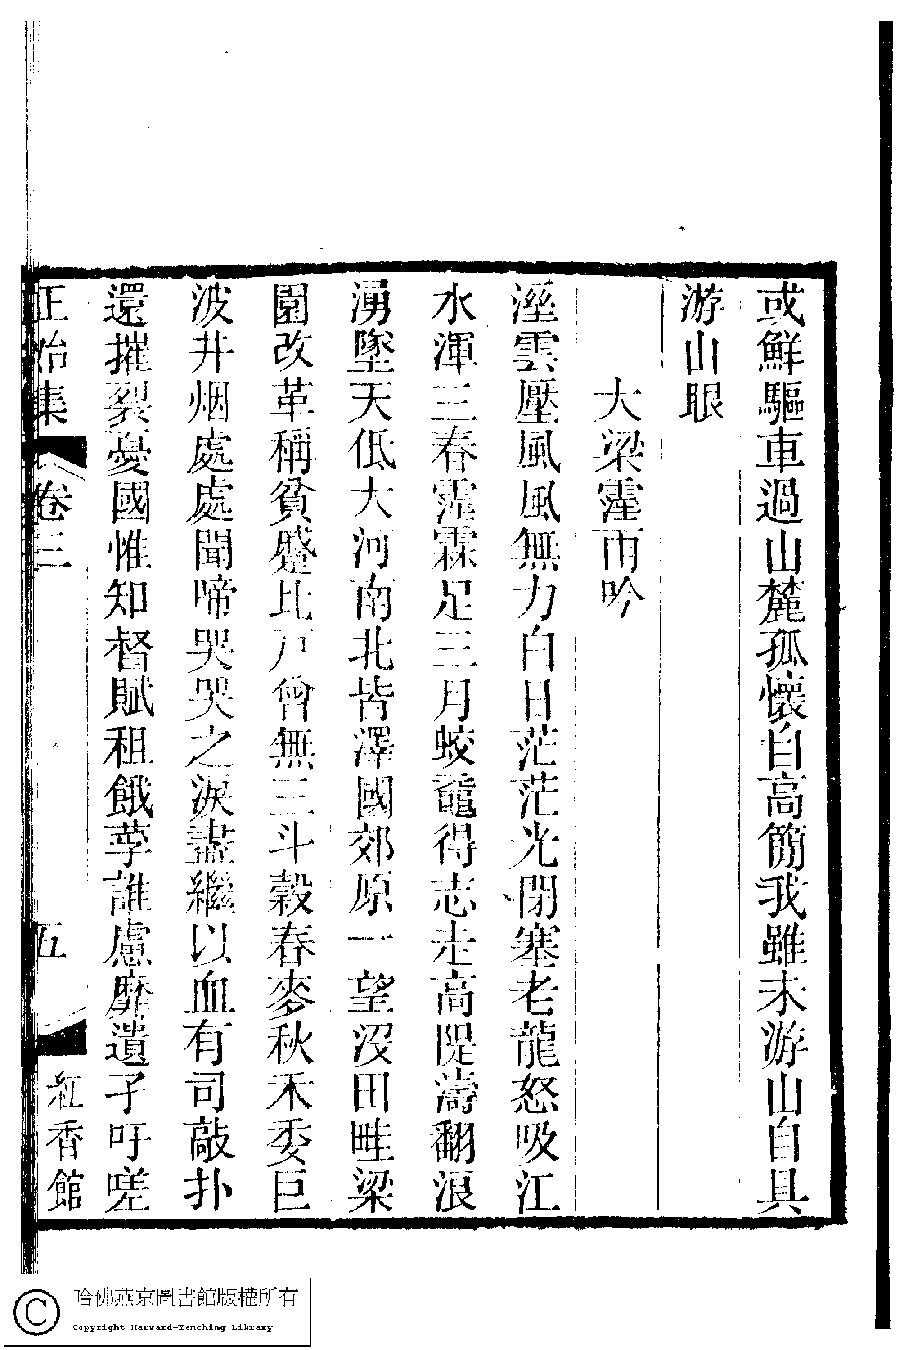 或鮮驅車過山麓孤懷自高簡我雖未游山自具
游山眼
大梁霪雨吟
溼雲壓風風無力白日茫茫光閉塞老龍怒吸江
水渾三春霪霖足三月蛟鼉得志走高隄濤翻浪
湧墜天低大河南北皆澤國郊原一望沒田畦梁
園改革稱貧蹙比戸曾無三斗穀春麥秋禾委巨
波井烟處處聞啼哭哭之淚盡繼以血有司敲扑
還摧裂憂國惟知督賦租餓莩誰慮靡遺孑吁嗟
正始集 卷三 五 紅香館
哈佛燕京圖書館版權所有
Copyright Harvard-Yenching Library